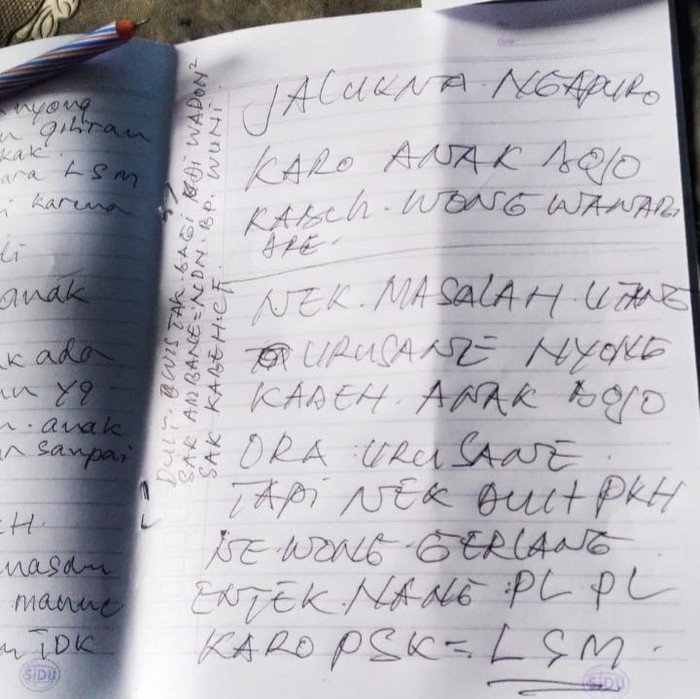 nyong
giliran
kak.
ara LSM
i karena
li
anak
k ada
yg
anak
sampai
H.
manut
TDK
SIDU
DUIT WIS TAK BAGI WADON²
SAK AMBANE NDN BP. WUNI.
SAK KABEHCE
JALUKNA NGAPURO
KARO ANAK BOJO
KABEH. WONG WANARE
APE.
NEK. MASALAH. UTANG
URUSANE NYONG
KABEH. ANAK BOJO
ORA URUSANE.
TAPI NEK DUIT PKH
NE WONG GERLANG
ENTEK. NANG PL PL
KARO PSK = LSM.
SIDU